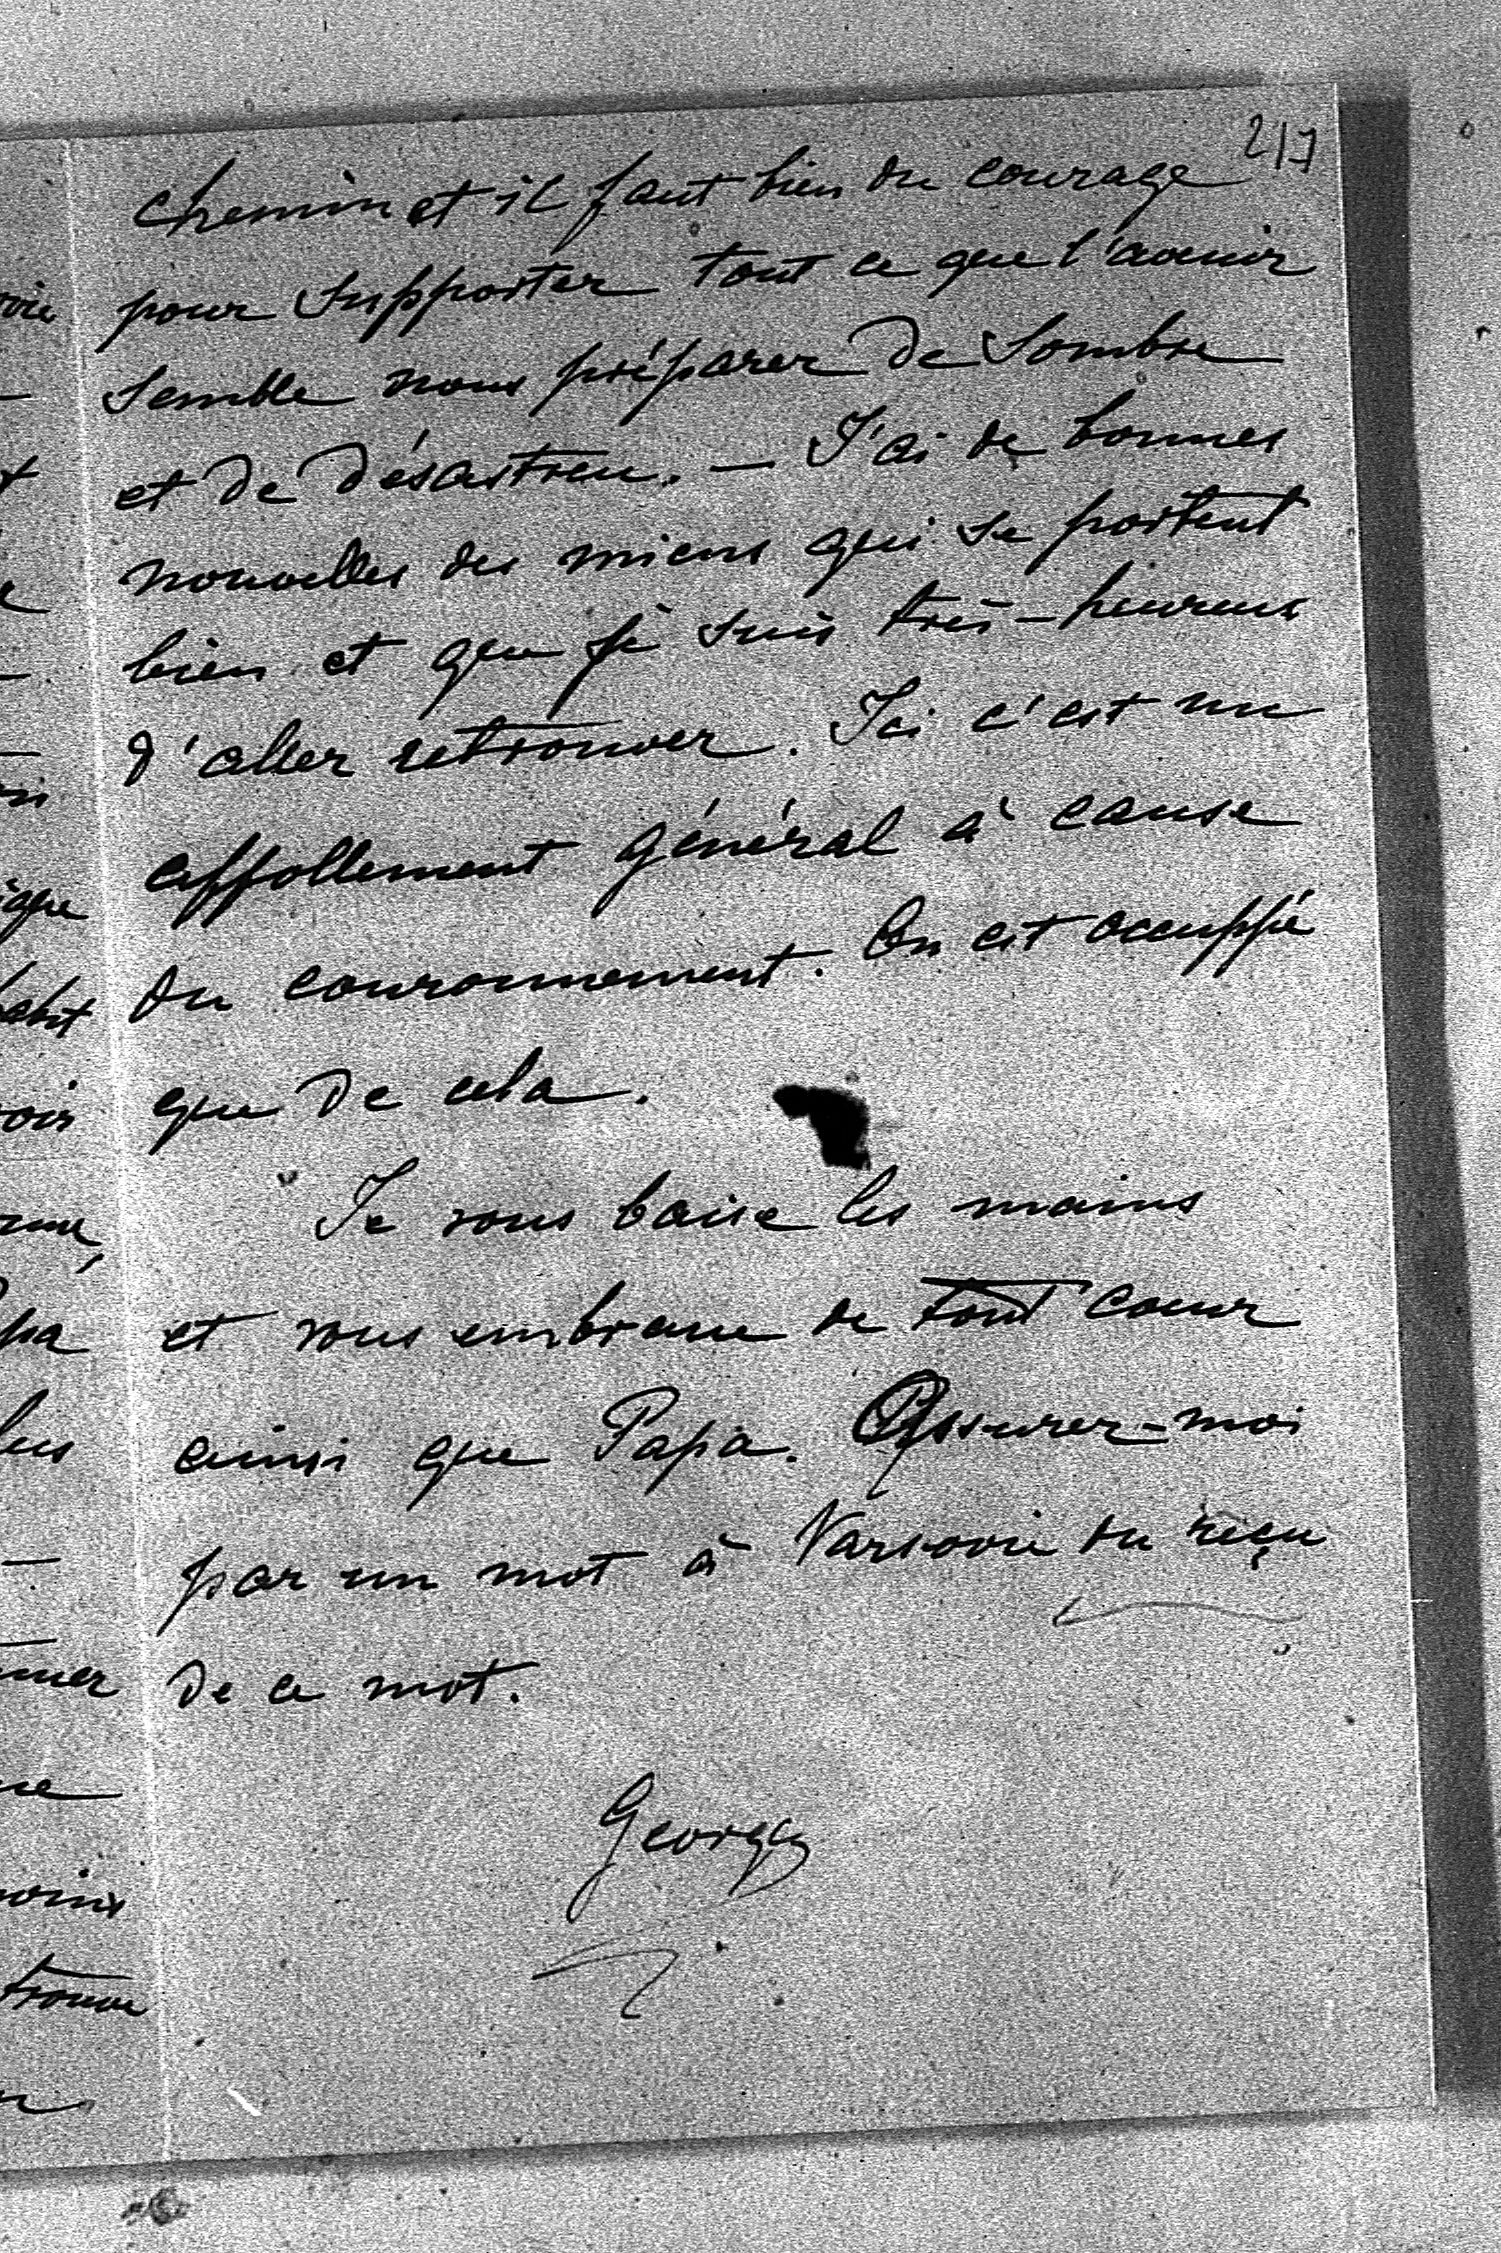 217
chemin et il faut bien du courage
pour supporter tout ce que l'avenir
semble nous préparer de sombre
et de désastreu. — J'ai de bonnes
nouvelles des miens qui se portent
bien et que je suis très-heureux
d'aller retrouver. Ici c'est un
affollement général à cause
du couronnement. On est occuppé
que de cela.
Je vous baise les mains
et vous embrasse de tout coeur
ainsi que Papa. Assurez-moi
par un mot à Varsovie du reçu
de ce mot.
Georges